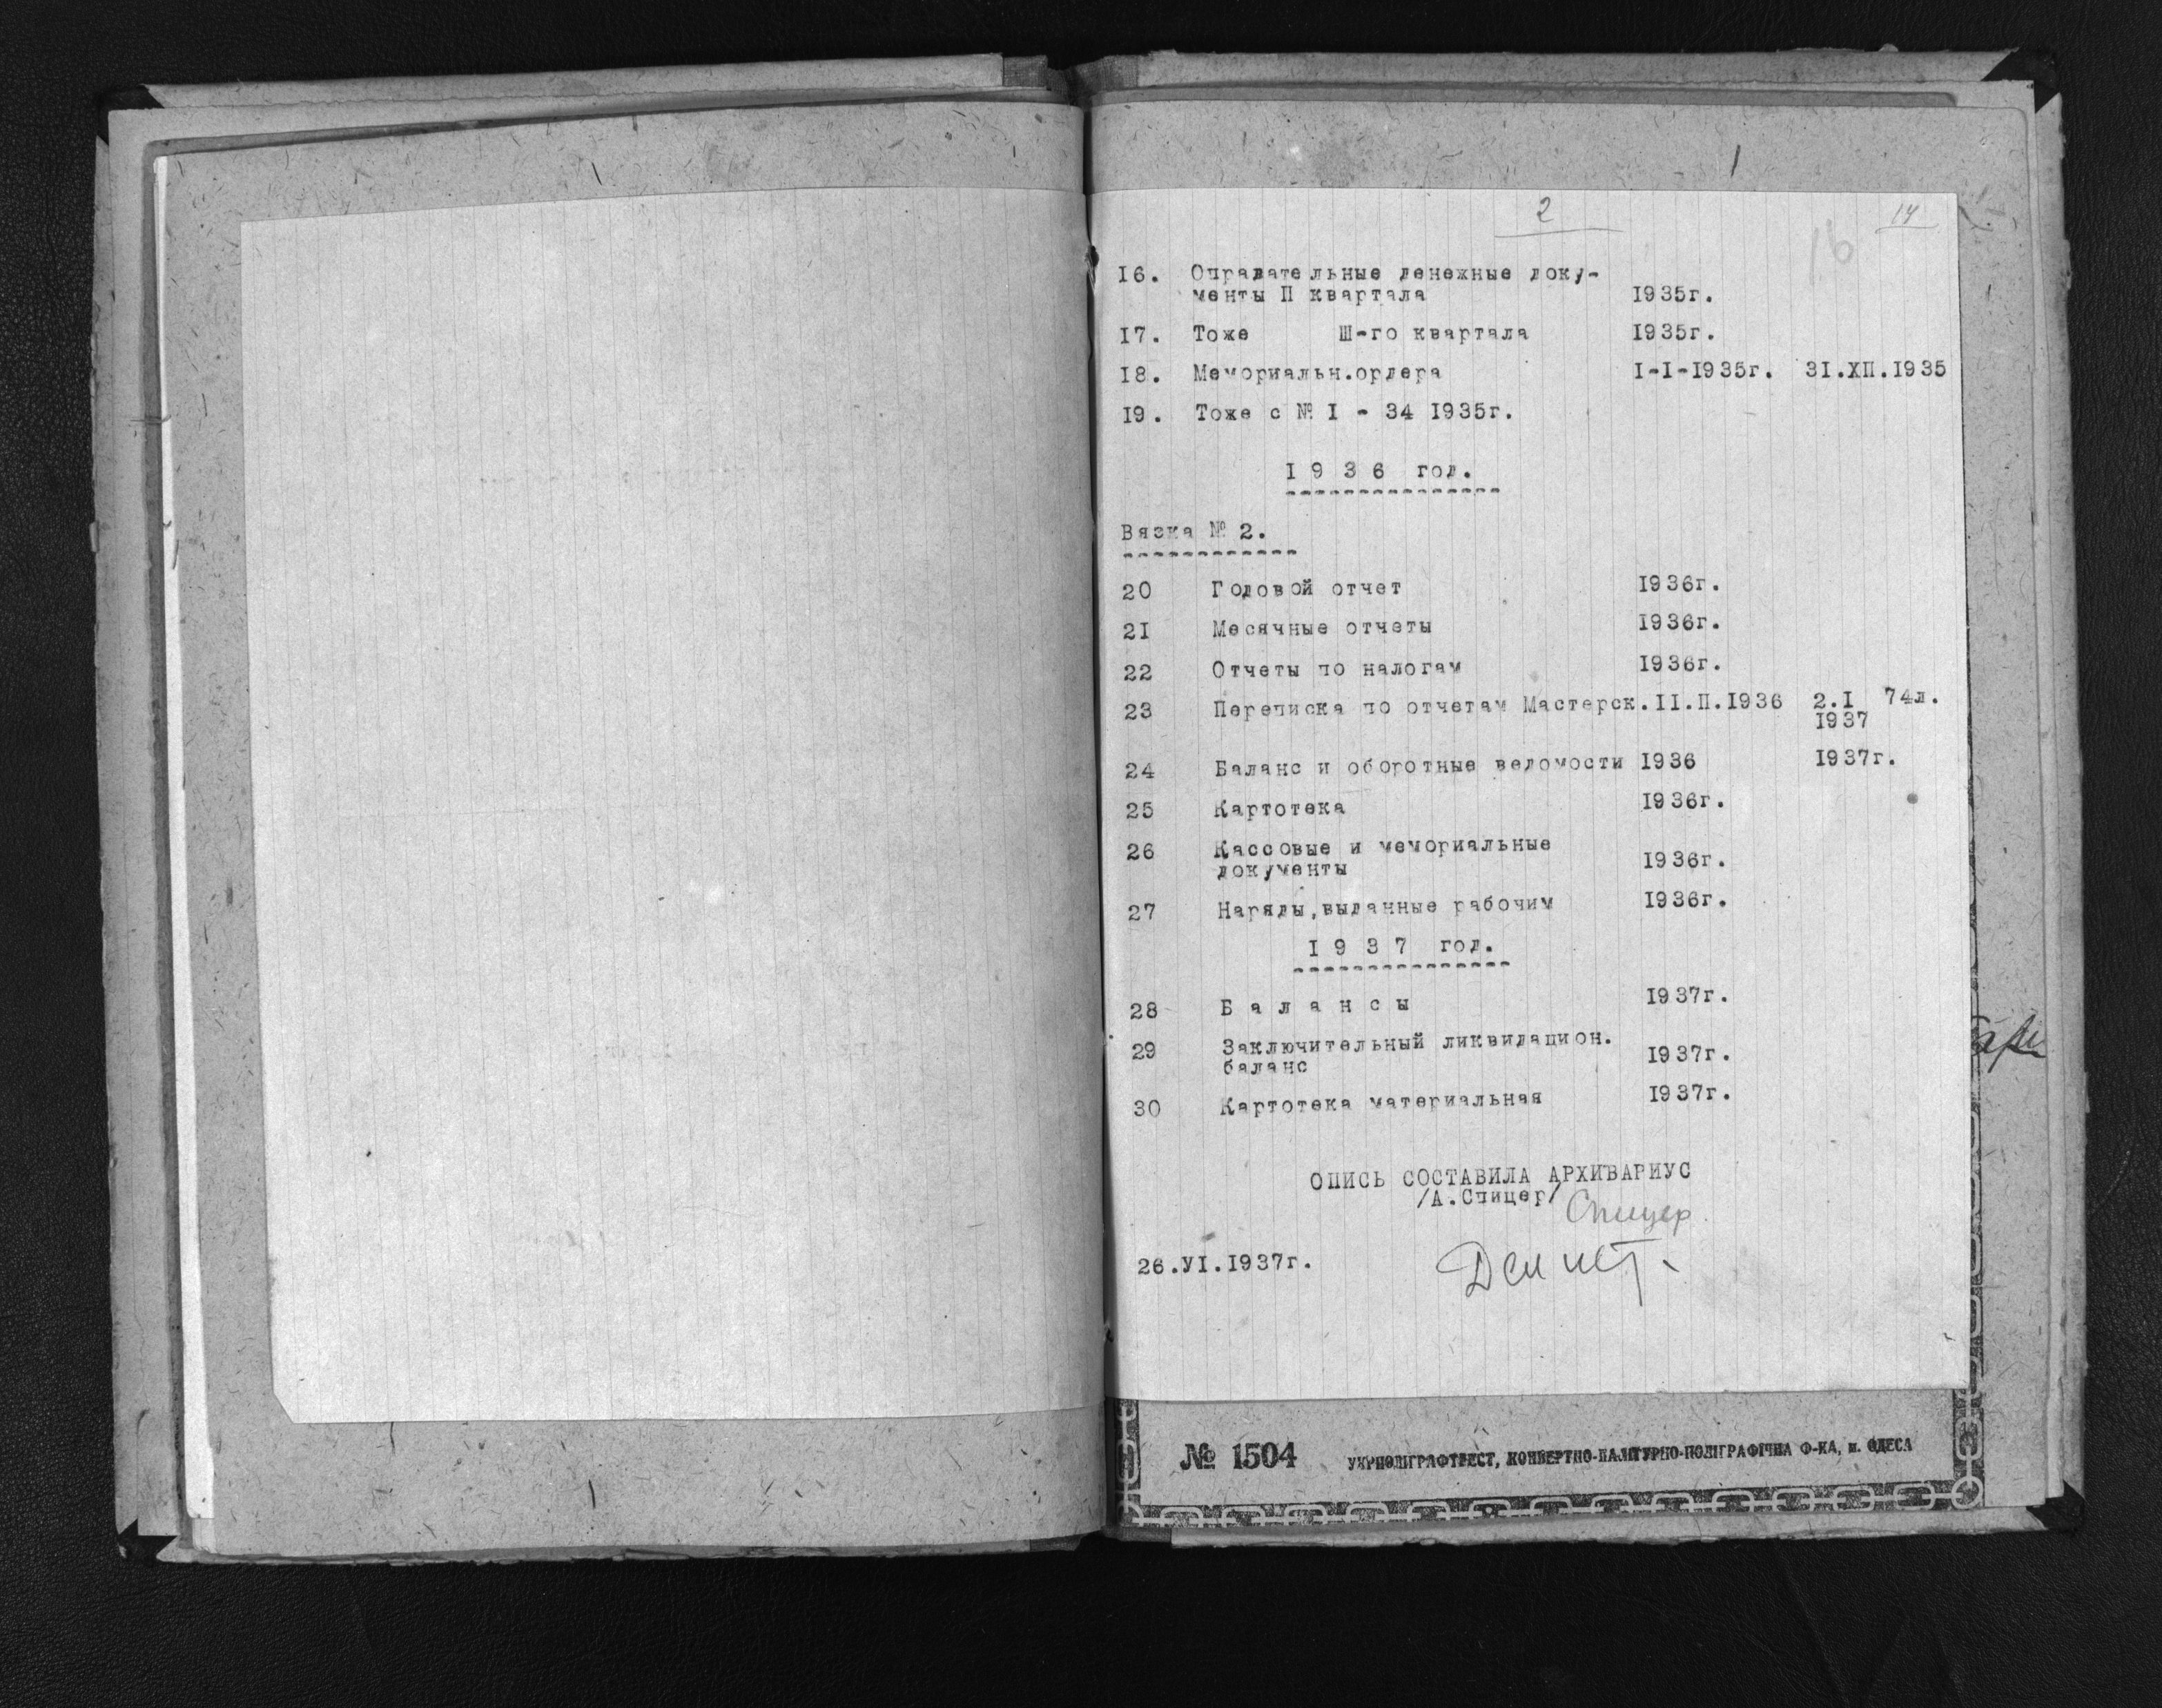 2
14
16
16. Оправдательные денежные доку-
менты П квартала 1935г.
17. Тоже Ш-го квартала 1935г.
18. Мемориальн.ордера I-I-1935г. 31.ХП.1935
19. Тоже с № I - 34 1935г.
1 9 3 6 год.
Вязка № 2.
20 Годовой отчет 1936г.
21 Месячные отчеты 1936г.
22 Отчеты по налогам 1936г.
23 Переписка по отчетам Мастерск.II.П.1936 2.I 74л.
1937
24 Баланс и оборотные ведомости 1936 1937г.
25 Картотека 1936г.
26 Кассовые и мемориальные
документы 1936г.
27 Наряды,выданные рабочим 1936г.
1 9 3 7 год.
28 Б а л а н с ы 1937г.
29 Заключительный ликвидацион.
баланс 1937г.
30 Картотека материальная 1937г.
ОПИСЬ СОСТАВИЛА АРХИВАРИУС
/А.Спицер/ Спицер
26.УI.1937г.
№ 1504 УКРПОЛІГРАФТРЕСТ, КОНВЕРТНО-ПАЛІТУРНО-ПОЛІГРАФІЧНА Ф-КА, м. ОДЕСА